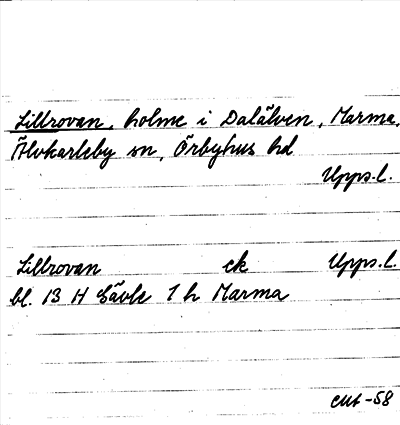 Lillrovan, holme i Dalälven, Marma,
Älvkarleby sn, Örbyhus hd
Upps.l.
Lillrovan ek Upps.l
bl. 13 H Gävle 1 h Marma
-58